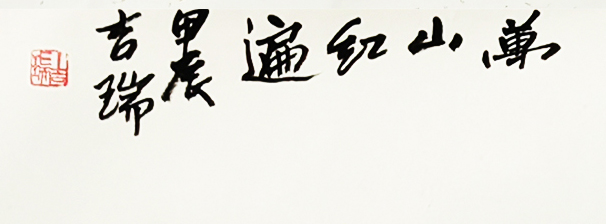 萬山红遍
甲辰
吉瑞